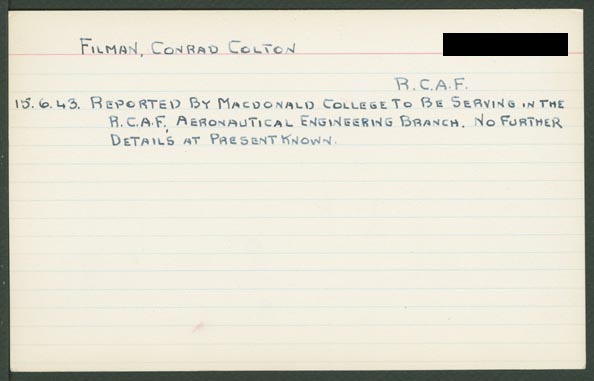 FILMAN, CONRAD COLTON
R.C.A.F.
15.6.43. REPORTED BY MACDONALD COLLEGE TO BE SERVING IN THE
R.C.A.F., AERONAUTICAL ENGINEERING BRANCH. NO FURTHER
DETAILS AT PRESENT KNOWN.